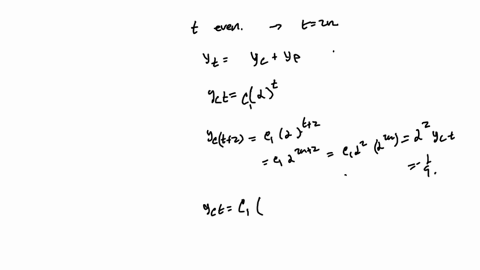 t even. → t=2n
y_t = y_c + y_p
y_ct = C_1(2)^t
y_c(t+2) = C_1 (2)^{t+2}
= C_1 2^{2n+2} = C_1 2^2 (2^{2n}) = 2^2 y_ct
= -1/9.
y_ct = C_1 (